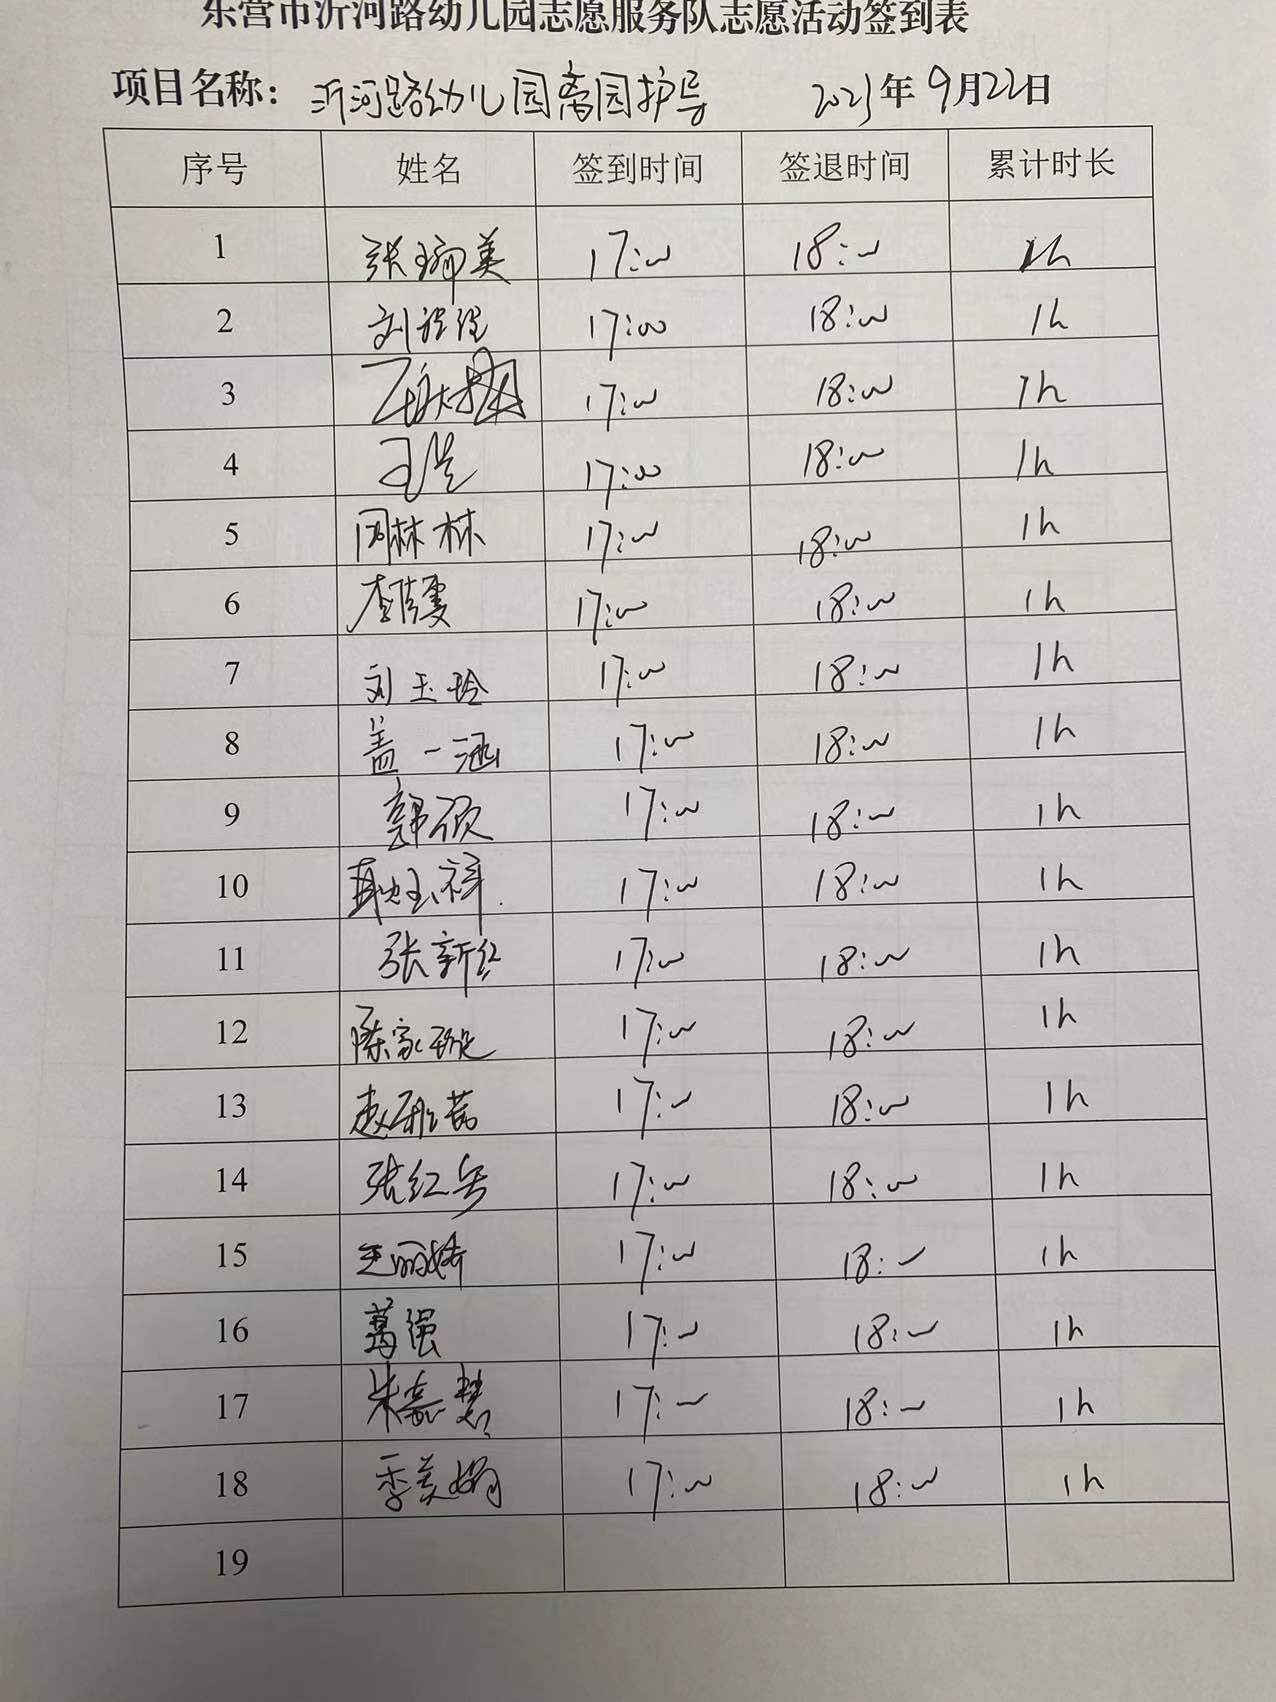 东营市沂河路幼儿园志愿服务队志愿活动签到表
项目名称：沂河路幼儿园离园护导 2023年9月22日
序号 姓名 签到时间 签退时间 累计时长
1 张瑞美 17:00 18:00 1h
2 刘 17:00 18:00 1h
3 17:00 18:00 1h
4 王 17:00 18:00 1h
5 闫林林 17:00 18:00 1h
6 李倩雯 17:00 18:00 1h
7 刘玉玲 17:00 18:00 1h
8 盖一涵 17:00 18:00 1h
9 郭硕 17:00 18:00 1h
10 玉祥 17:00 18:00 1h
11 张新红 17:00 18:00 1h
12 陈家璇 17:00 18:00 1h
13 赵茹 17:00 18:00 1h
14 张红岳 17:00 18:00 1h
15 王丽娇 17:00 18:00 1h
16 葛强 17:00 18:00 1h
17 朱嘉慧 17:00 18:00 1h
18 季美娟 17:00 18:00 1h
19